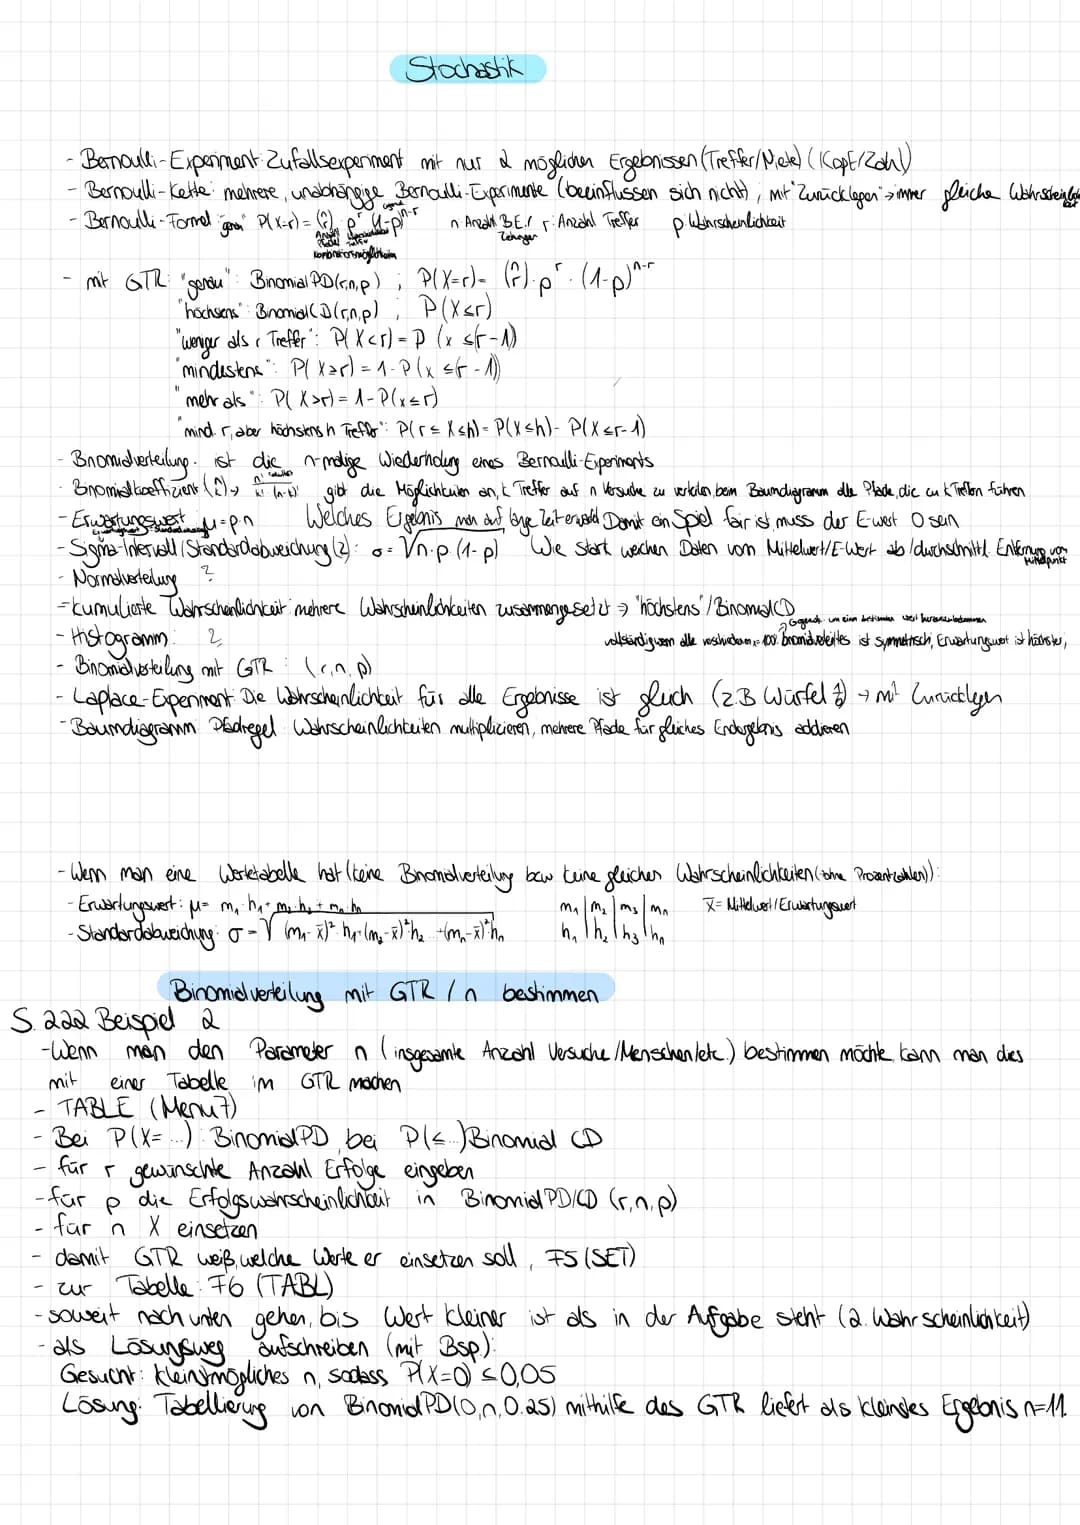 Stochastik
- Bernoulli-Experiment: Zufallsexperiment mit nur 2 möglichen Ergebnissen (Treffer/Niete) (Kopf/Zahl)
- Bernoulli-Kette: mehrere, unabhängige Bernoulli-Experimente (beeinflussen sich nicht), mit "Zurücklegen" → immer gleiche Wahrscheinlichkeit
- Bernoulli-Formel "genau" P(X=r) = (n r) · p^r · (1-p)^n-r n: Anzahl B.E. r: Anzahl Treffer p: Wahrscheinlichkeit
Kombinationsmöglichkeiten
- mit GTR: "genau": BinomialPD(r,n,p) ; P(X=r) = (n r) · p^r · (1-p)^n-r
"höchsens": BinomialCD(r,n,p) , P(X≤r)
"weniger als r Treffer": P(X<r) = P (x ≤(r-1)
"mindestens": P(X≥r) = 1-P(x ≤(r-1))
"mehr als": P(X>r) = 1-P(x≤r)
"mind. r, aber höchstens h Treffer": P(r≤X≤h) = P(X≤h) - P(X≤r-1)
- Binomialverteilung: ist die n-malige Wiederholung eines Bernoulli-Experiments
- Binomialkoeffizient (n k) → n!/k!·(n-k)! gibt die Möglichkeiten an, k Treffer auf n Versuche zu verteilen, beim Baumdiagramm alle Pfade, die zu k Treffern führen
- Erwartungswert μ=p·n Welches Ergebnis man auf lange Zeit erwartet Damit ein Spiel fair ist, muss der E-wert 0 sein
- Sigma-Intervall/Standardabweichung(2): σ = √n·p·(1-p) Wie stark weichen Daten vom Mittelwert/E-Wert ab/durchschnittl. Entfernung vom Mittelpunkt
- Normalverteilung ?
- kumulierte Wahrscheinlichkeit: mehrere Wahrscheinlichkeiten zusammengesetzt → "höchstens"/BinomialCD
- Histogramm: ? vollständig wenn alle
ist symmetrisch, Erwartungswert ist höchster,
- Binomialverteilung mit GTR: (r,n,p)
- Laplace-Experiment: Die Wahrscheinlichkeit für alle Ergebnisse ist gleich (z.B Würfel 1/6) → mit Zurücklegen
- Baumdiagramm: Pfadregel: Wahrscheinlichkeiten multiplizieren, mehrere Pfade für gleiches Endergebnis addieren
- Wenn man eine Wertetabelle hat (keine Binomialverteilung bzw keine gleichen Wahrscheinlichkeiten (ohne Prozentzahlen)):
- Erwartungswert: μ= m₁·h₁+m₂·h₂+mₙ·hₙ m₁|m₂|m₃|mₙ x̄= Mittelwert/Erwartungswert
- Standardabweichung: σ = √(m₁-x̄)²·h₁+(m₂-x̄)²·h₂...+(mₙ-x̄)²·hₙ h₁|h₂|h₃|hₙ
Binomialverteilung mit GTR / n bestimmen
S. 222 Beispiel 2
- Wenn man den Parameter n (insgesamte Anzahl Versuche/Menschen/etc.) bestimmen möchte, kann man dies
mit einer Tabelle im GTR machen
- TABLE (Menu 7)
- Bei P(X=...): BinomialPD, bei P(≤...) Binomial CD
- für r gewünschte Anzahl Erfolge eingeben
- für p die Erfolgswahrscheinlichkeit in BinomialPD/CD (r,n,p)
- für n X einsetzen
- damit GTR weiß, welche Werte er einsetzen soll, F5 (SET)
- zur Tabelle: F6 (TABL)
- soweit nach unten gehen, bis Wert kleiner ist als in der Aufgabe steht (2. Wahrscheinlichkeit)
- als Lösungsweg aufschreiben (mit Bsp):
Gesucht: kleinstmögliches n, sodass P(X=0) ≤ 0,05
Lösung: Tabellierung von BinomialPD(0,n,0.25) mithilfe des GTR liefert als kleinstes Ergebnis n=11.